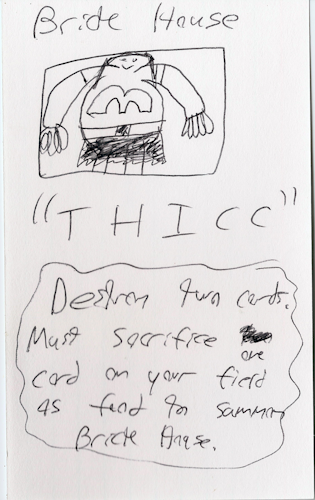 Brick House
"THICC"
Destroy two cards.
Must sacrifice
one
card on your field
as food to summon
Brick House.